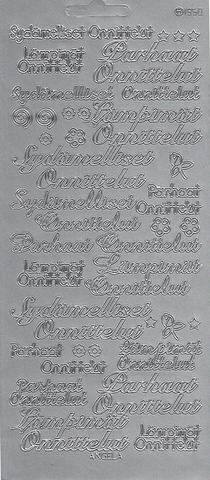 ©1550
Sydämelliset Onnittelut
Lämpimät Onnittelut
Parhaat
Onnittelut
Sydämelliset Onnittelut
Lämpimät
Onnittelut
Sydämelliset
Onnittelut
Parhaat
Onnittelut
Sydämelliset
Onnittelut
Parhaat Onnittelut
Lämpimät
Onnittelut
Lämpimät
Onnittelut
Sydämelliset
Onnittelut
Parhaat
Onnittelut
Lämpimät
Onnittelut
Parhaat
Onnittelut
Parhaat
Onnittelut
Lämpimät
Onnittelut
Lämpimät
Onnittelut
ANGELA